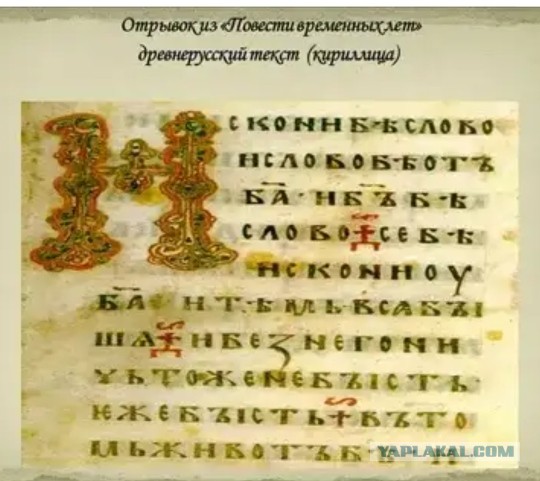 Отрывок из «Повести временных лет»
древнерусский текст (кириллица)
ИСКОНИБѢСЛОВО
ИСЛОВОБѢОТЪ
Б҃А·ИБ҃ЪБѢ
СЛОВО СЕБѢ
ИСКОНИОУ
Б҃А ИТѢМЬВСѦБЪІ
ШѦ ИБЕЗНЕГОНИ
ЧЬТОЖЕНЕБЪІСТЬ
ѤЖЕБЪІСТЬ ВЪТО
МЬЖИВОТЪБѢ И
YAPLAKAL.COM